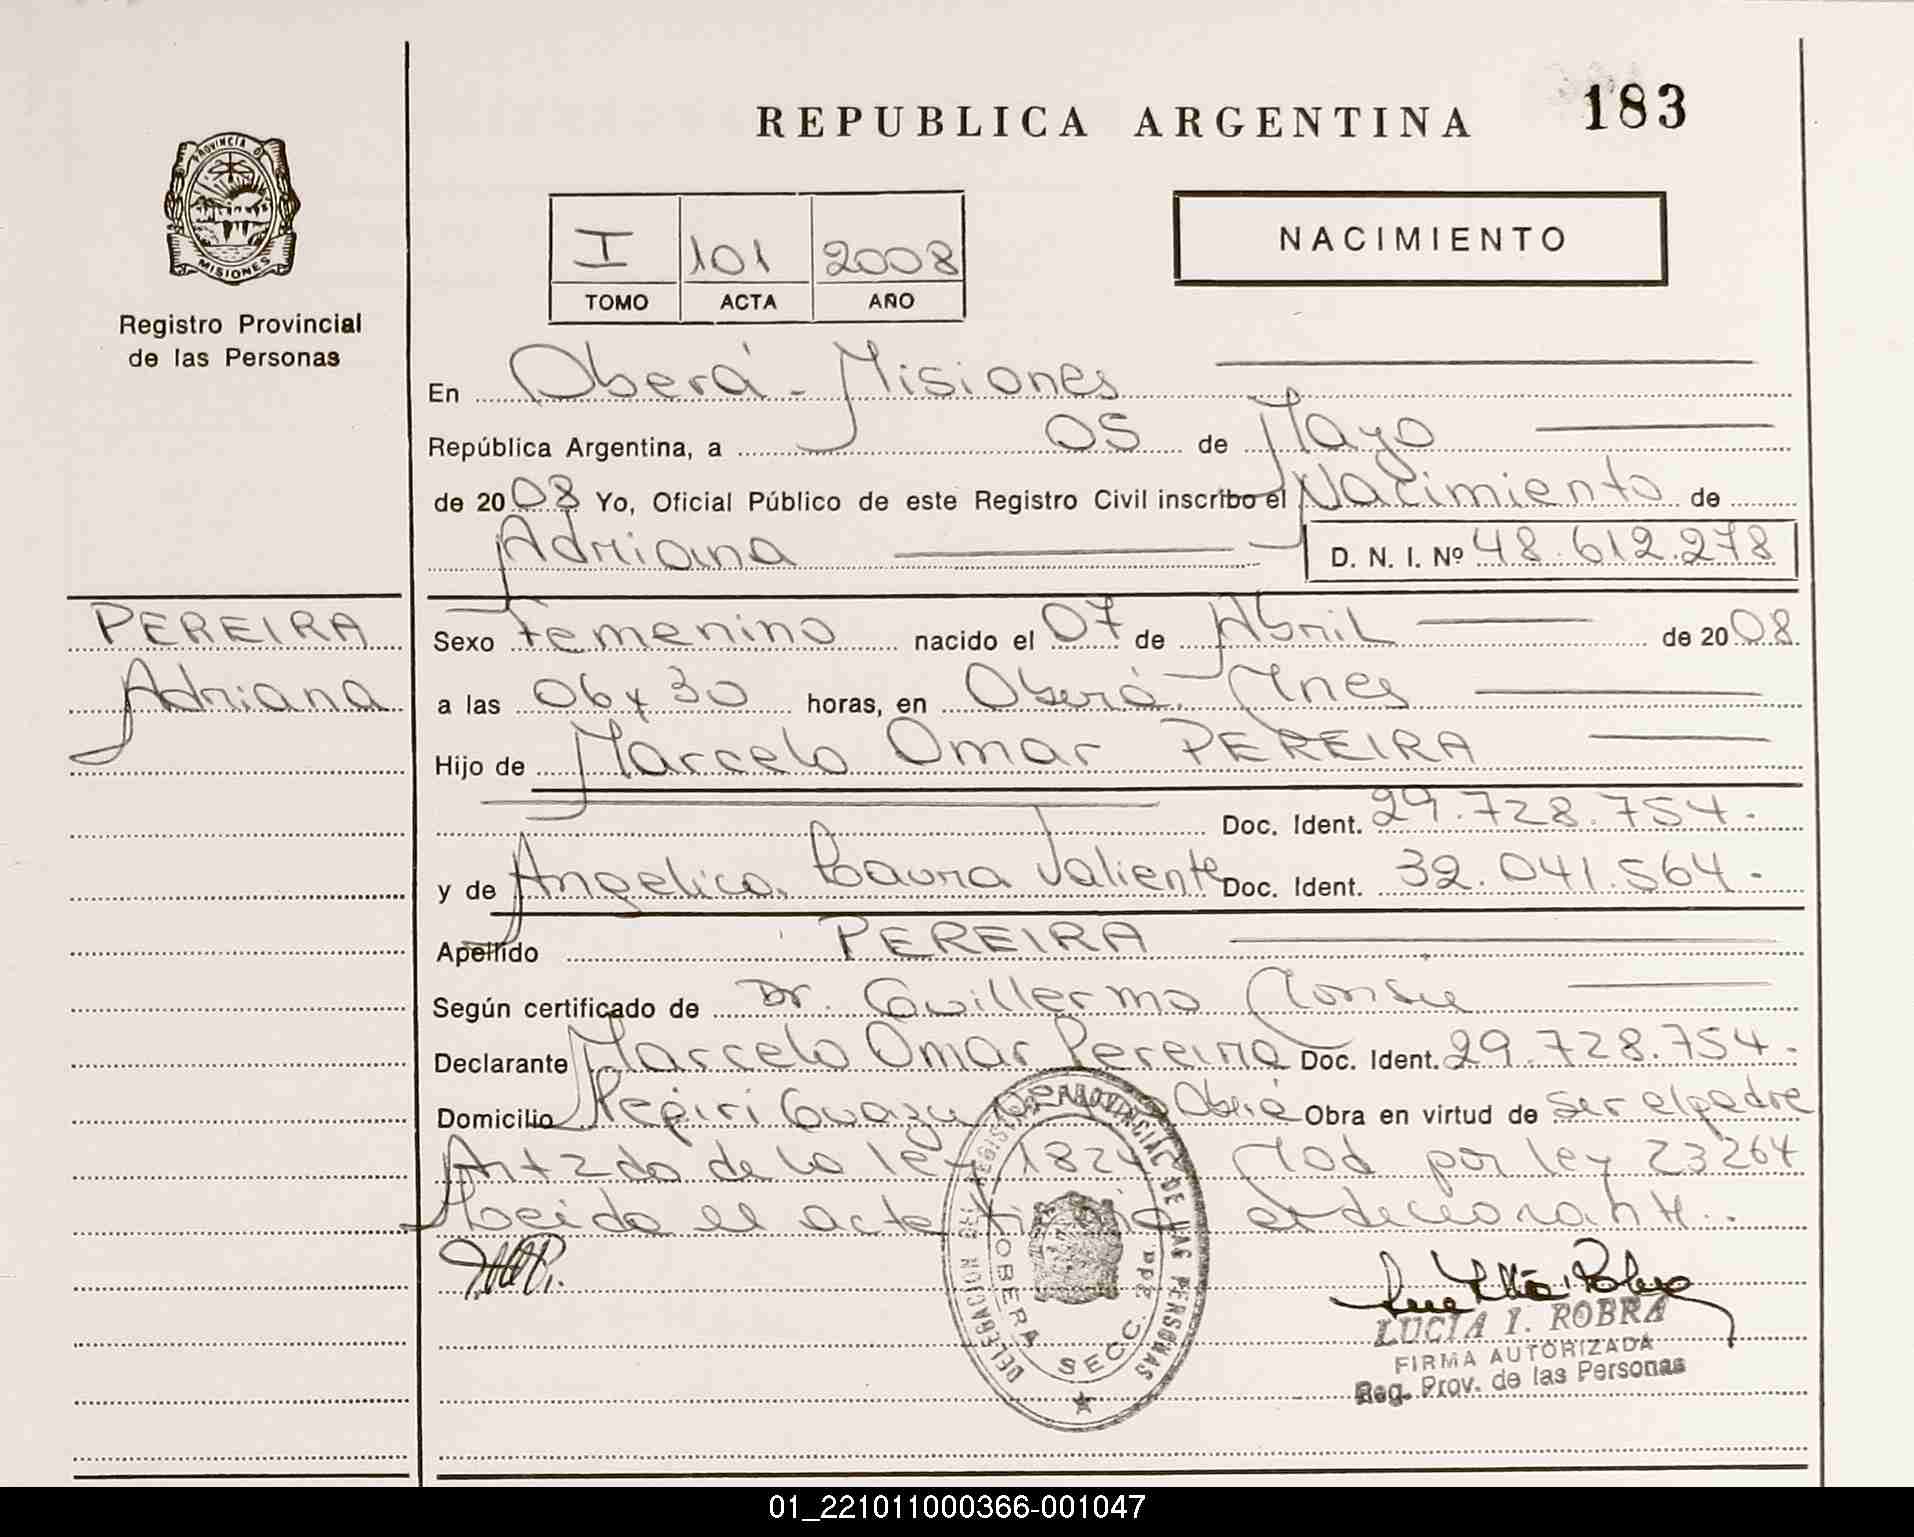 183
REPUBLICA ARGENTINA
PROVINCIA DE
MISIONES
Registro Provincial
de las Personas
I 101 2008
TOMO ACTA AÑO
NACIMIENTO
En Oberá - Misiones
República Argentina, a 05 de Mayo
de 2008 Yo, Oficial Público de este Registro Civil inscribo el Nacimiento de
Adriana D. N. I. Nº 48.612.278
PEREIRA
Adriana
Sexo Femenino nacido el 07 de Abril de 2008
a las 06 y 30 horas, en Oberá. Mnes
Hijo de Marcelo Omar PEREIRA
Doc. Ident. 29.728.754.
y de Angelica Laura Valiente Doc. Ident. 32.041.564.
Apellido PEREIRA
Según certificado de Dr. Guillermo
Declarante Marcelo Omar Pereira Doc. Ident. 29.728.754.
Domicilio Pepiri Guazu Oberá Obra en virtud de ser el padre
Art 2do de la ley Mod por ley 23264
Leida el acta el declarante.
REGISTRO PROVINCIAL DE LAS PERSONAS
DELEGACION
OBERA SECC.
LUCIA I. ROBRA
FIRMA AUTORIZADA
Reg. Prov. de las Personas
01_221011000366-001047